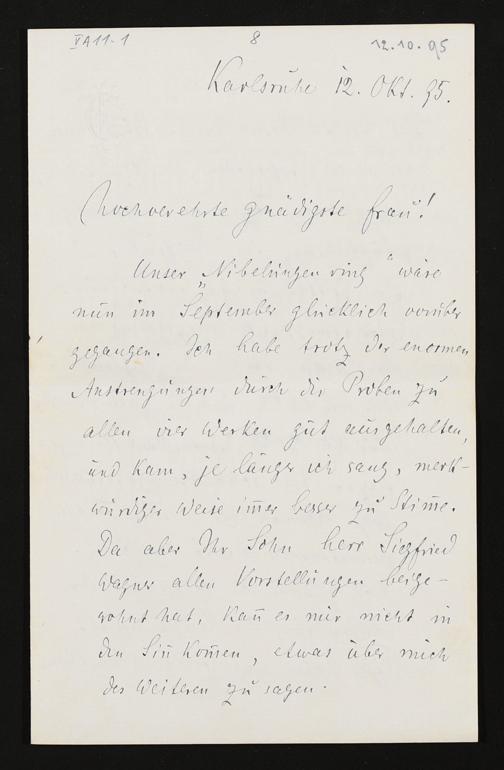 VA11-1 8 12.10.95
Karlsruhe 12. Okt. 95.
Hochverehrte gnädigste Frau!
Unser „Nibelungenring“ wäre
nun im September glücklich vorüber
gegangen. Ich habe trotz der enormen
Anstrengungen durch die Proben zu
allen vier Werken gut ausgehalten,
und kam, je länger ich sang, merk-
würdiger Weise im̄er besser zu Stim̄e.
Da aber Ihr Sohn Herr Siegfried
Wagner allen Vorstellungen beige-
wohnt hat, kan̄ es mir nicht in
den Sin̄ kom̄en, etwas über mich
des Weiteren zu sagen.